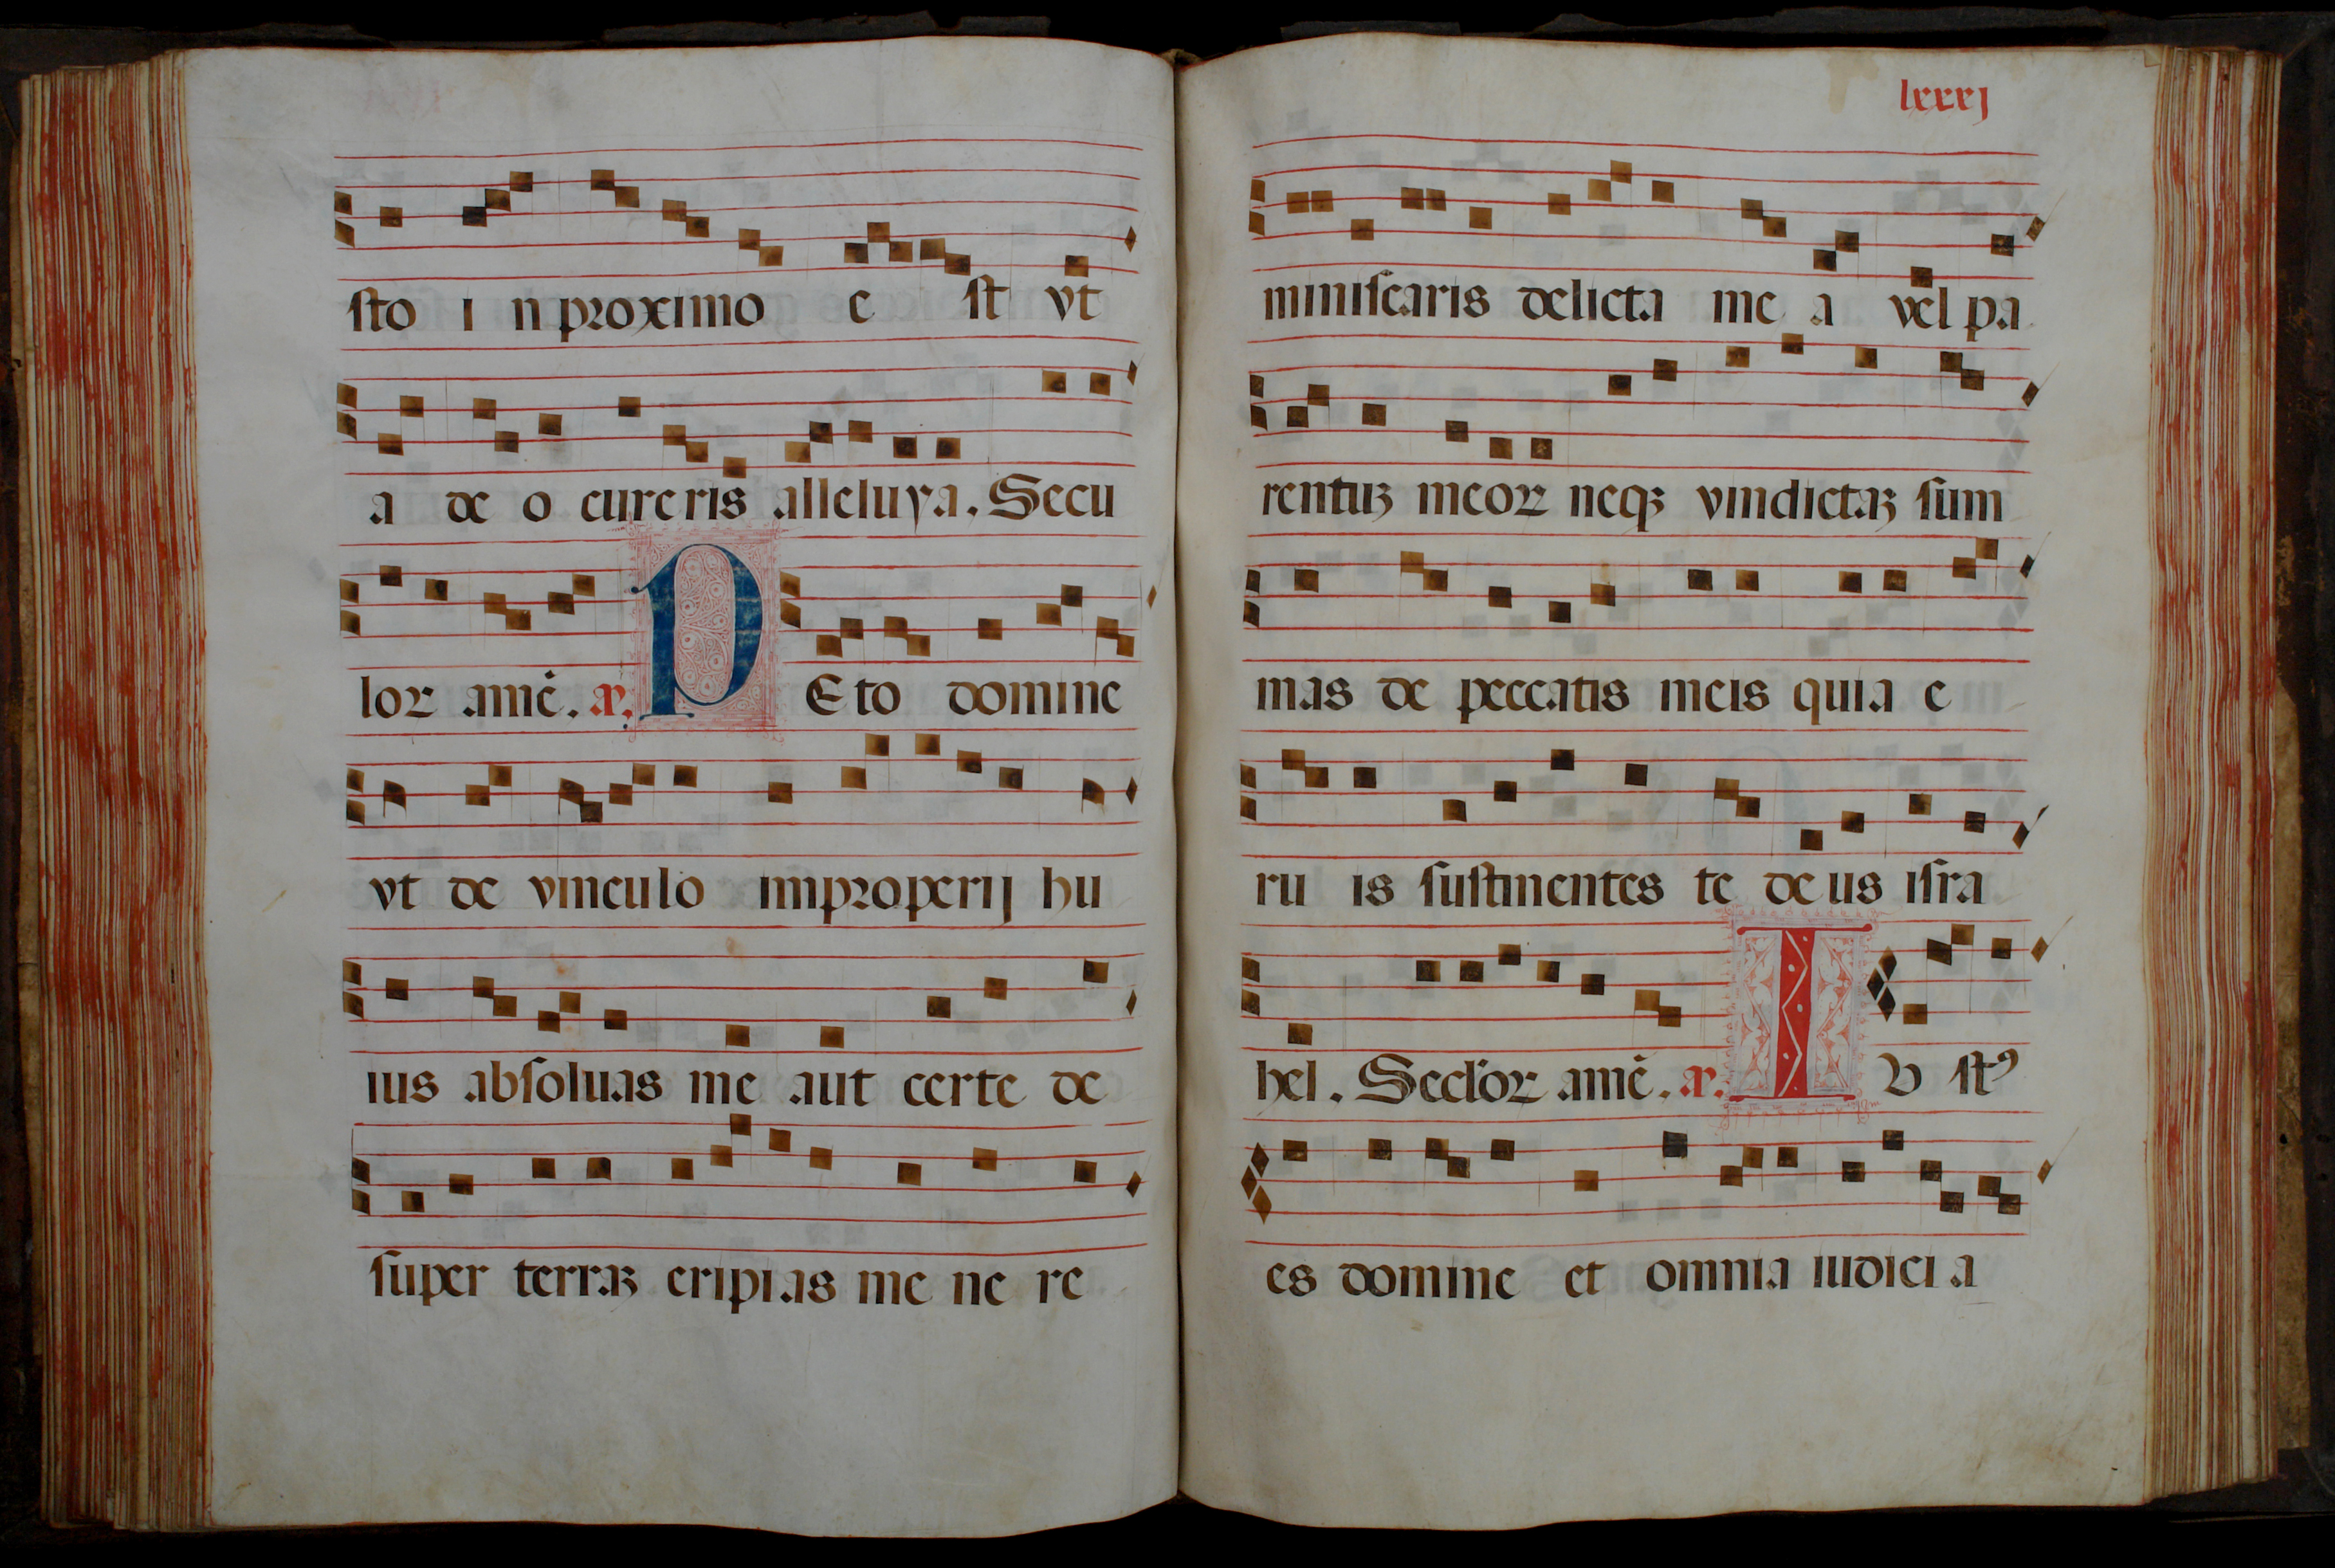 ſto i n proximo e ſt vt
a de o cure ris alleluya. Secu
lor amē. a. P Eto domine
vt de vinculo improperij hu
ius abſoluas me aut certe de
ſuper terraꝫ eripias me ne re
lxxxj
miniſcaris delicta me a vel pa
rentuꝫ meoꝝ neqꝫ vindictaꝫ ſum
mas de peccatis meis quia e
ru is ſuſtinentes te de us iſra
hel. Secl'or amē. a. I V ſtꝰ
es domine et omnia iudici a